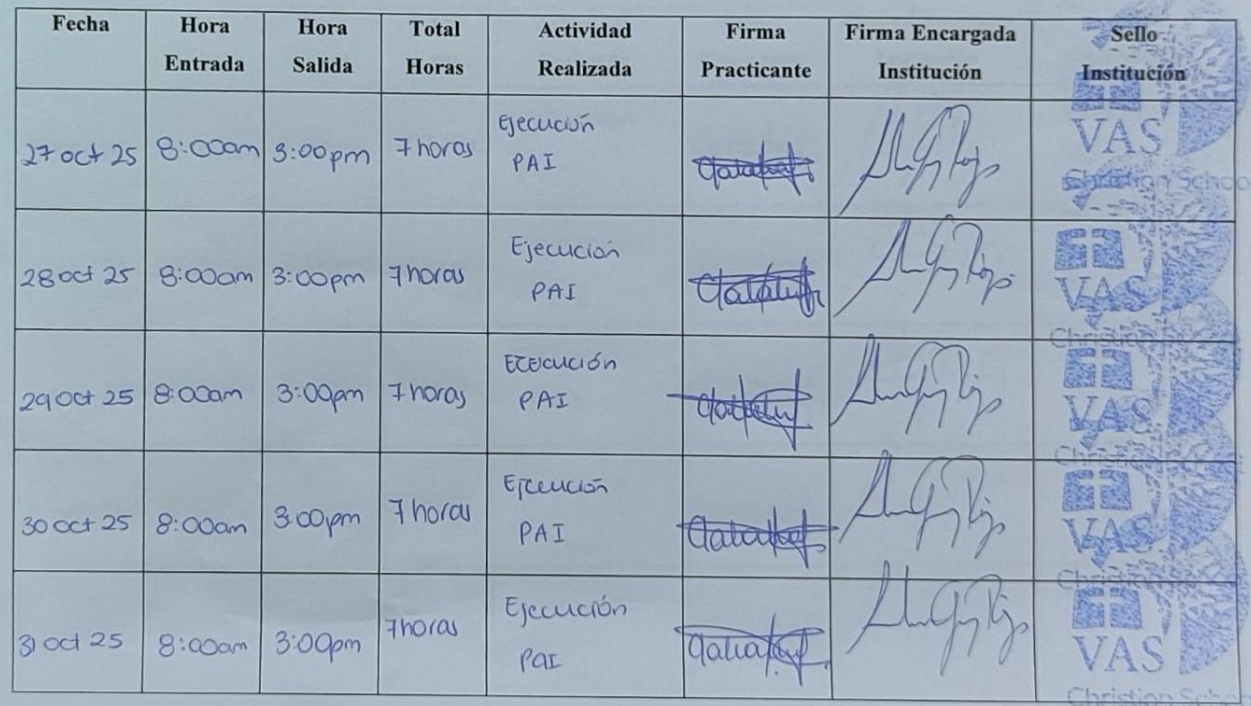 Fecha Hora Entrada Hora Salida Total Horas Actividad Realizada Firma Practicante Firma Encargada Institución Sello Institución
27 oct 25 8:00am 3:00pm 7 horas Ejecución PAI VAS Christian School
28 oct 25 8:00am 3:00pm 7 horas Ejecución PAI VAS Christian
29 oct 25 8:00am 3:00pm 7 horas PAI VAS
30 oct 25 8:00am 3:00pm 7 horas Ejecución PAI VAS
31 oct 25 8:00am 3:00pm 7 horas Ejecución PAI VAS Christian